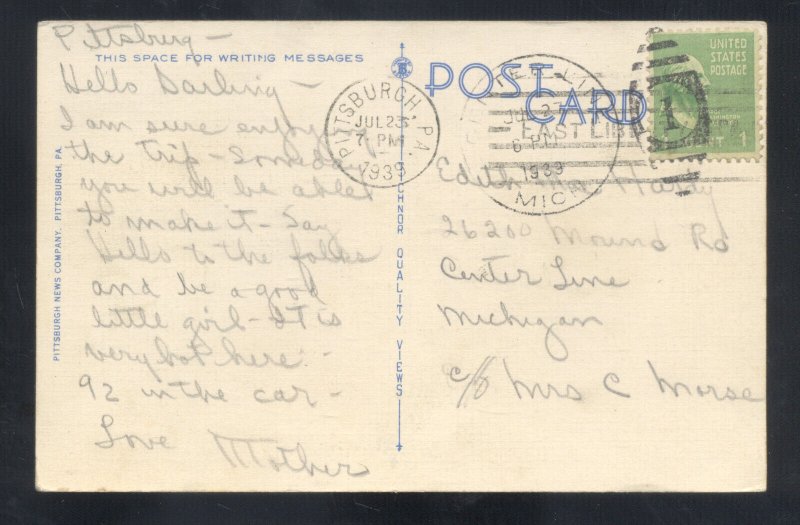 Pittsburg –
THIS SPACE FOR WRITING MESSAGES
Hello Darling –
I am sure enjoying
the trip – Someday
you will be able t
to make it – Say
Hello to the folks
and be a good
little girl – It is
very hot here –
92 in the car –
Love Mother
PITTSBURGH NEWS COMPANY, PITTSBURGH, PA.
TICHNOR QUALITY VIEWS
POST CARD
PITTSBURGH, PA.
JUL 23
7 PM
1939
CENTER LINE
JUL 27
6 PM
1939
MICH
EAST LIB
1
UNITED
STATES
POSTAGE
Edith Hardy
26200 Mound Rd
Center Line
Michigan
c/o Mrs C Morse